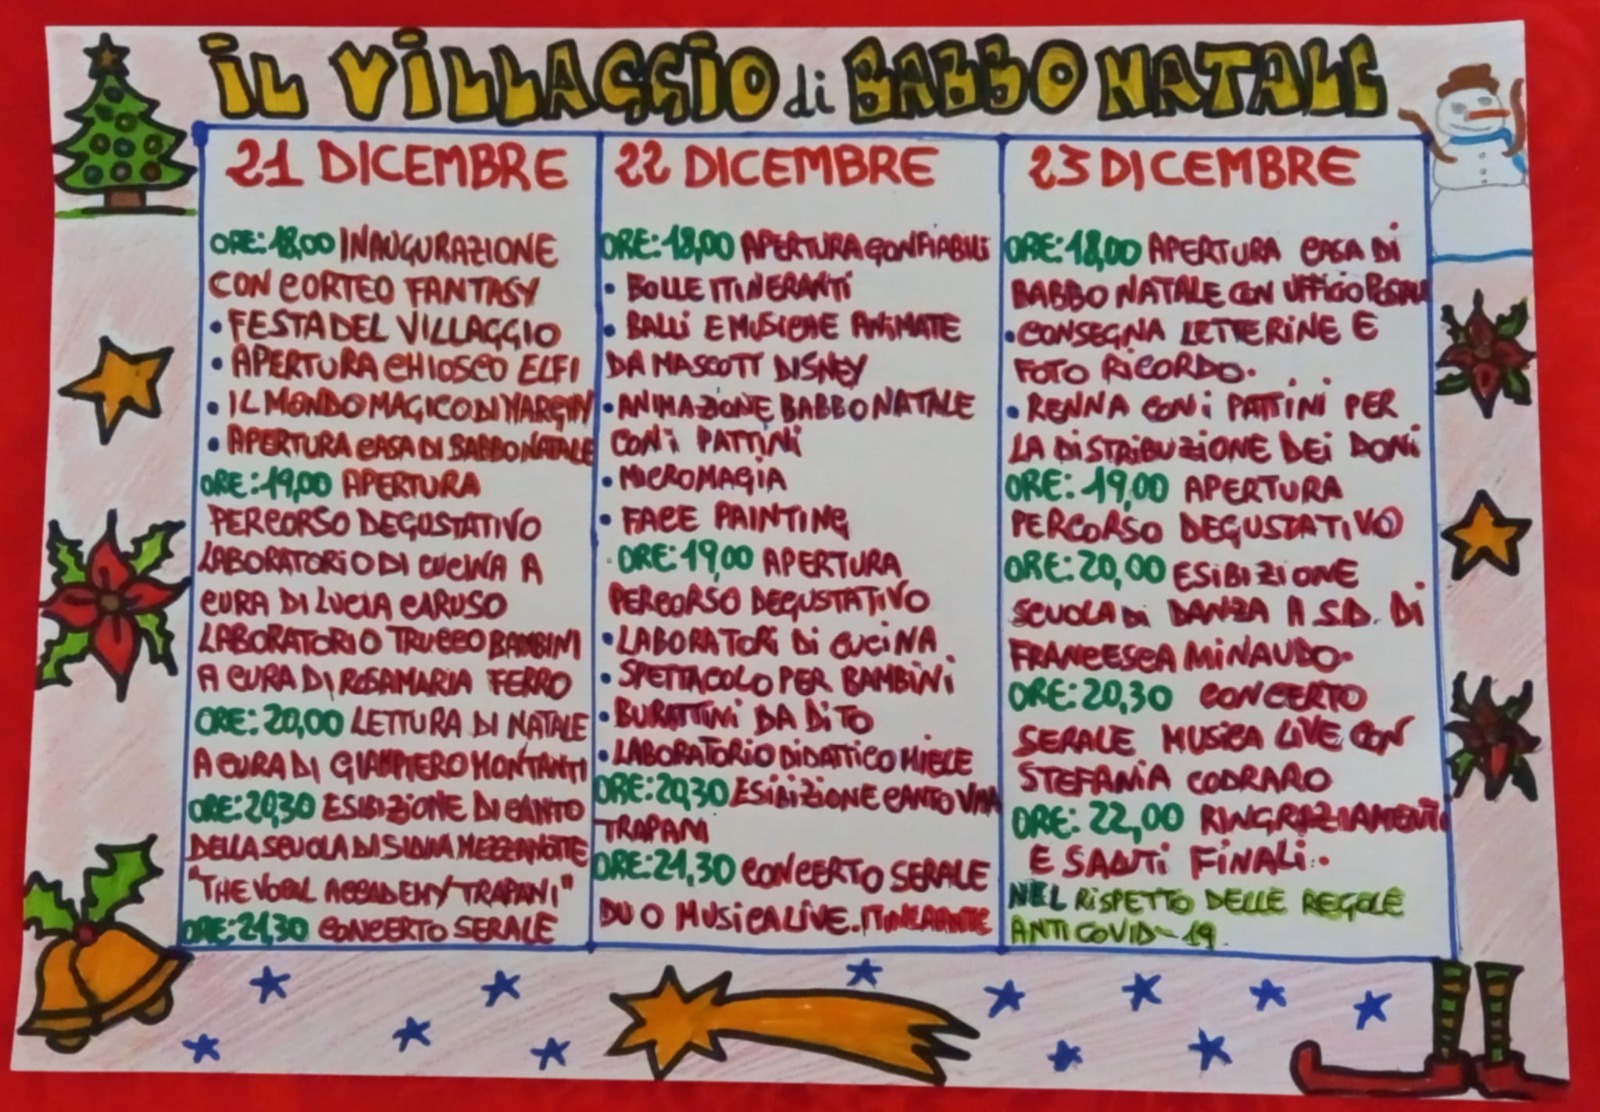 IL VILLAGGIO di BABBO NATALE
21 DICEMBRE
ORE:18,00 INAUGURAZIONE
CON CORTEO FANTASY
• FESTA DEL VILLAGGIO
• APERTURA CHIOSCO ELFI
• IL MONDO MAGICO DI
• APERTURA CASA DI BABBO NATALE
ORE:19,00 APERTURA
PERCORSO DEGUSTATIVO
LABORATORIO DI CUCINA A
CURA DI LUCIA CARUSO
LABORATORIO TRUCCO BAMBINI
A CURA DI ROSAMARIA FERRO
ORE:20,00 LETTURA DI NATALE
A CURA DI GIAMPIERO MONTANTI
ORE:20,30 ESIBIZIONE DI CANTO
DELLA SCUOLA DI SILVIA MEZZANOTTE
"THE VOCAL ACCADEMY TRAPANI"
ORE:21,30 CONCERTO SERALE
22 DICEMBRE
ORE:18,00 APERTURA GONFIABILI
• BOLLE ITINERANTI
• BALLI E MUSICHE ANIMATE
DA MASCOTT DISNEY
• ANIMAZIONE BABBO NATALE
CON i PATTINI
• MICROMAGIA
• FACE PAINTING
ORE:19,00 APERTURA
PERCORSO DEGUSTATIVO
• LABORATORI DI CUCINA
• SPETTACOLO PER BAMBINI
• BURATTINI DA DITO
• LABORATORIO DIDATTICO MIELE
ORE:20,30 ESIBIZIONE CANTO VMA
TRAPANI
ORE:21,30 CONCERTO SERALE
DUO MUSICA LIVE. ITINERANTE
23 DICEMBRE
ORE:18,00 APERTURA CASA DI
BABBO NATALE CON UFFICIO POSTALE
• CONSEGNA LETTERINE E
FOTO RICORDO.
• RENNA CON i PATTINI PER
LA DISTRIBUZIONE DEI DONI
ORE: 19,00 APERTURA
PERCORSO DEGUSTATIVO
ORE:20,00 ESIBIZIONE
SCUOLA DI DANZA A.S.D. DI
FRANCESCA MINAUDO.
ORE:20,30 CONCERTO
SERALE MUSICA LIVE CON
STEFANIA CODRARO
ORE: 22,00 RINGRAZIAMENTI
E SALUTI FINALI.
NEL RISPETTO DELLE REGOLE
ANTI COVID-19.